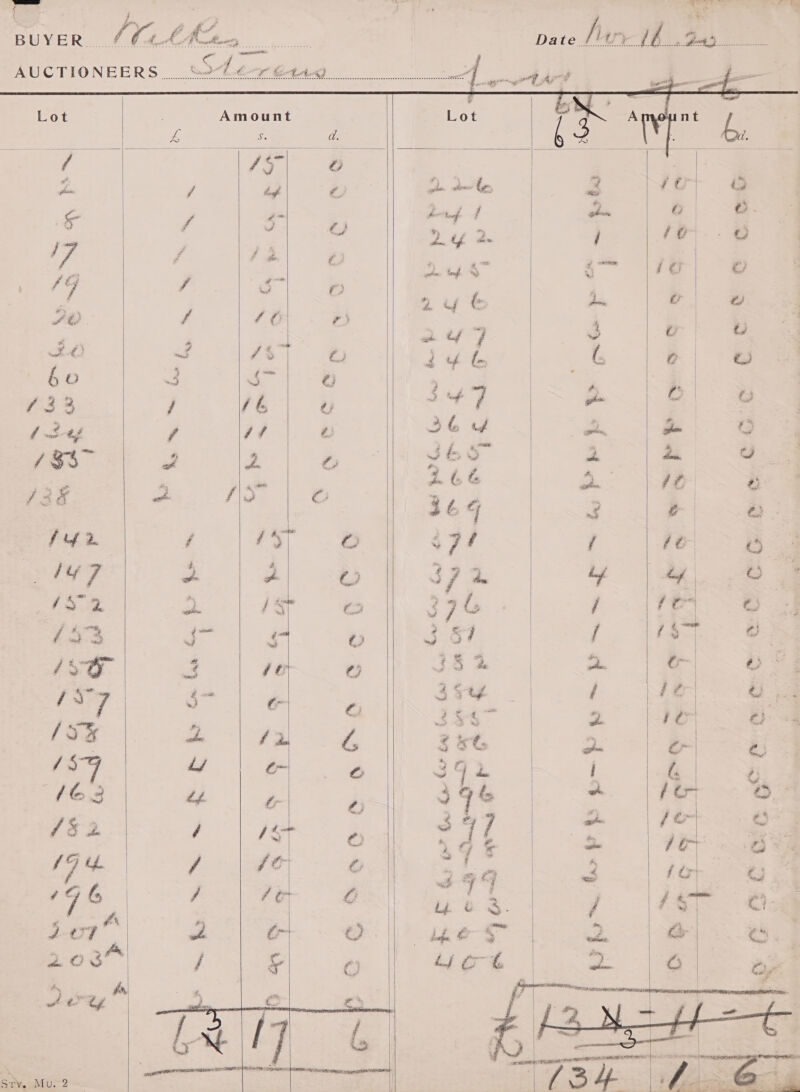 BUYER Wilkes Date Nov 16. 20
AUCTIONEERS Stevens
Lot Amount
£ s. d.
1 15 0
2 1 4 0
8 1 5 0
17 1 12 0
19 1 5 0
20 1 10 0
30 3 15 0
60 3 5 0
133 1 16 0
134 1 11 0
135 2 2 0
138 2 15 0
142 1 15 0
147 2 2 0
152 2 15 0
153 5 5 0
156 3 10 0
157 5 0 0
158 2 12 6
159 4 0 0
163 4 0 0
182 1 15 0
194 1 10 0
196 1 10 0
201A 2 0 0
203A 1 8 0
204A 2 0 0
63 17 6
Lot Amount
63 17 6
d.
226 3 10 0
241 2 0 0
242 1 10 0
245 5 10 0
246 2 0 0
247 3 0 0
346 6 0 0
347 2 0 0
364 2 2 0
365 2 2 0
366 2 10 0
369 3 0 0
371 1 10 0
372 4 4 0
376 1 10 0
381 1 15 0
382 2 0 0
384 1 10 0
385 2 10 0
386 2 0 0
392 1 6 0
396 2 10 0
397 2 10 0
398 2 10 0
399 3 10 0
403. 1 15 0
405 2 0 0
406 2 0 0
134 1 6
Stv. Mu. 2